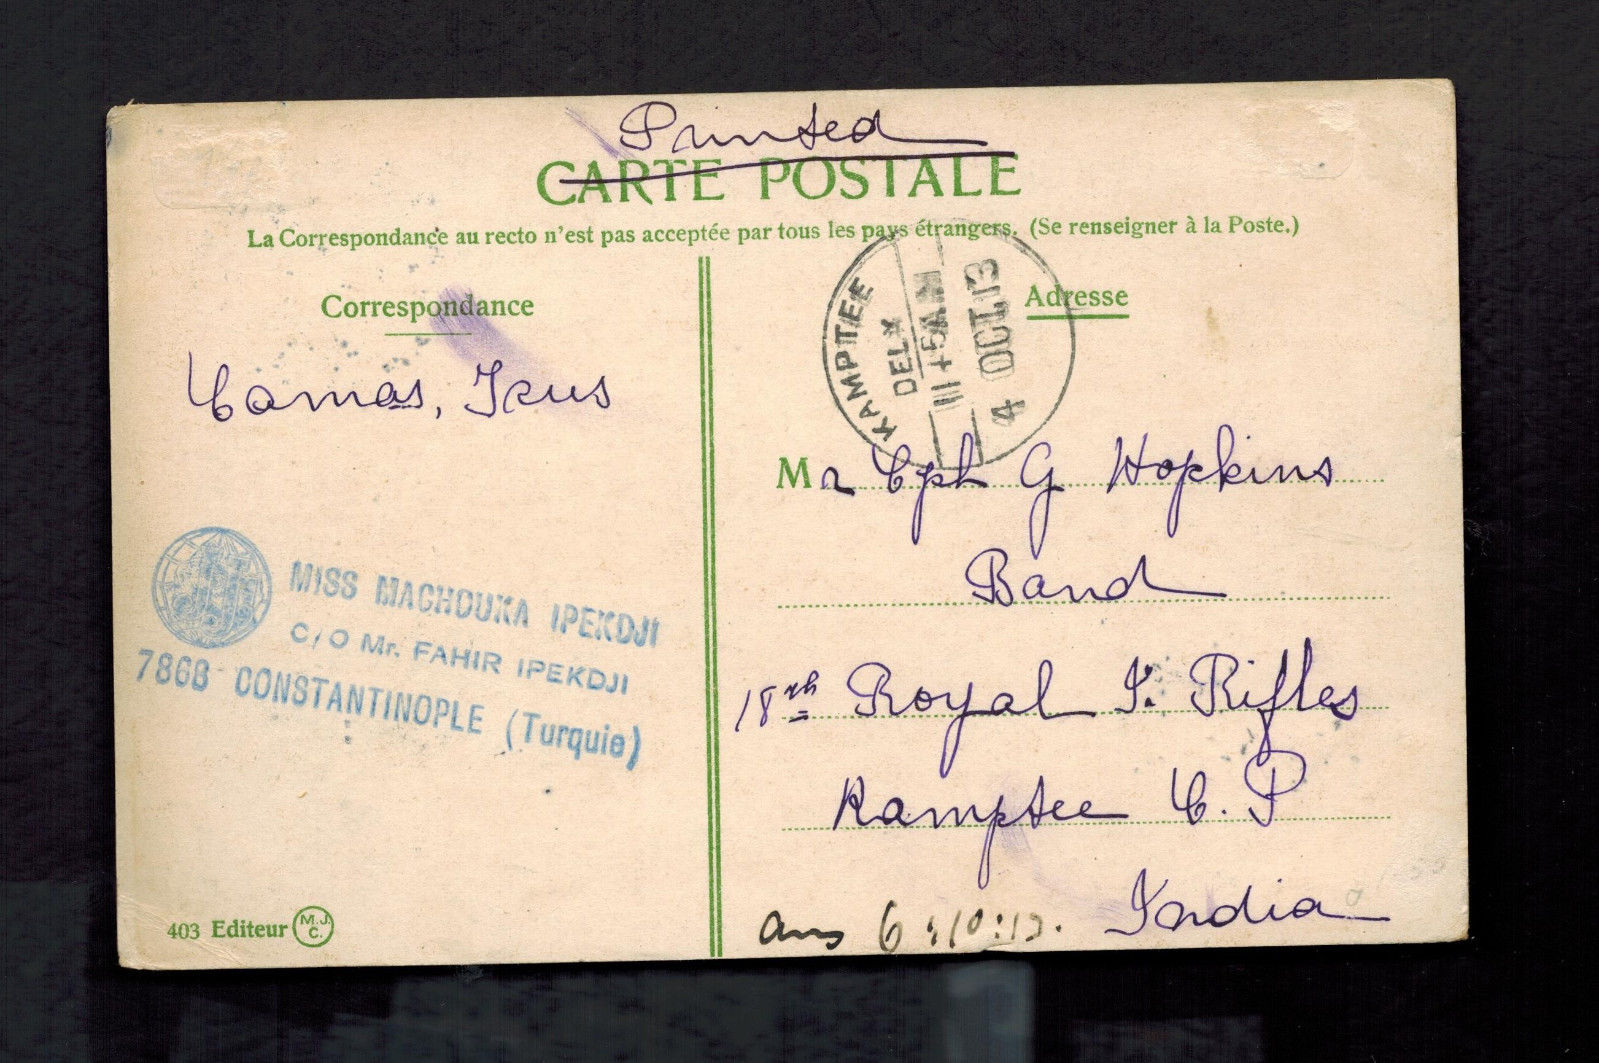 Printed
CARTE POSTALE
La Correspondance au recto n'est pas acceptée par tous les pays étrangers. (Se renseigner à la Poste.)
Correspondance
Adresse
KAMPTEE
DELY
4 OCT. 13
Mr Cph G Hopkins
Band
18th Royal I. Rifles
Kamptee C. P
India
MISS MACHOUKA IPEKDJI
C/O Mr. FAHIR IPEKDJI
786B CONSTANTINOPLE (Turquie)
403 Editeur M.J.C.
ans 6:10:13.